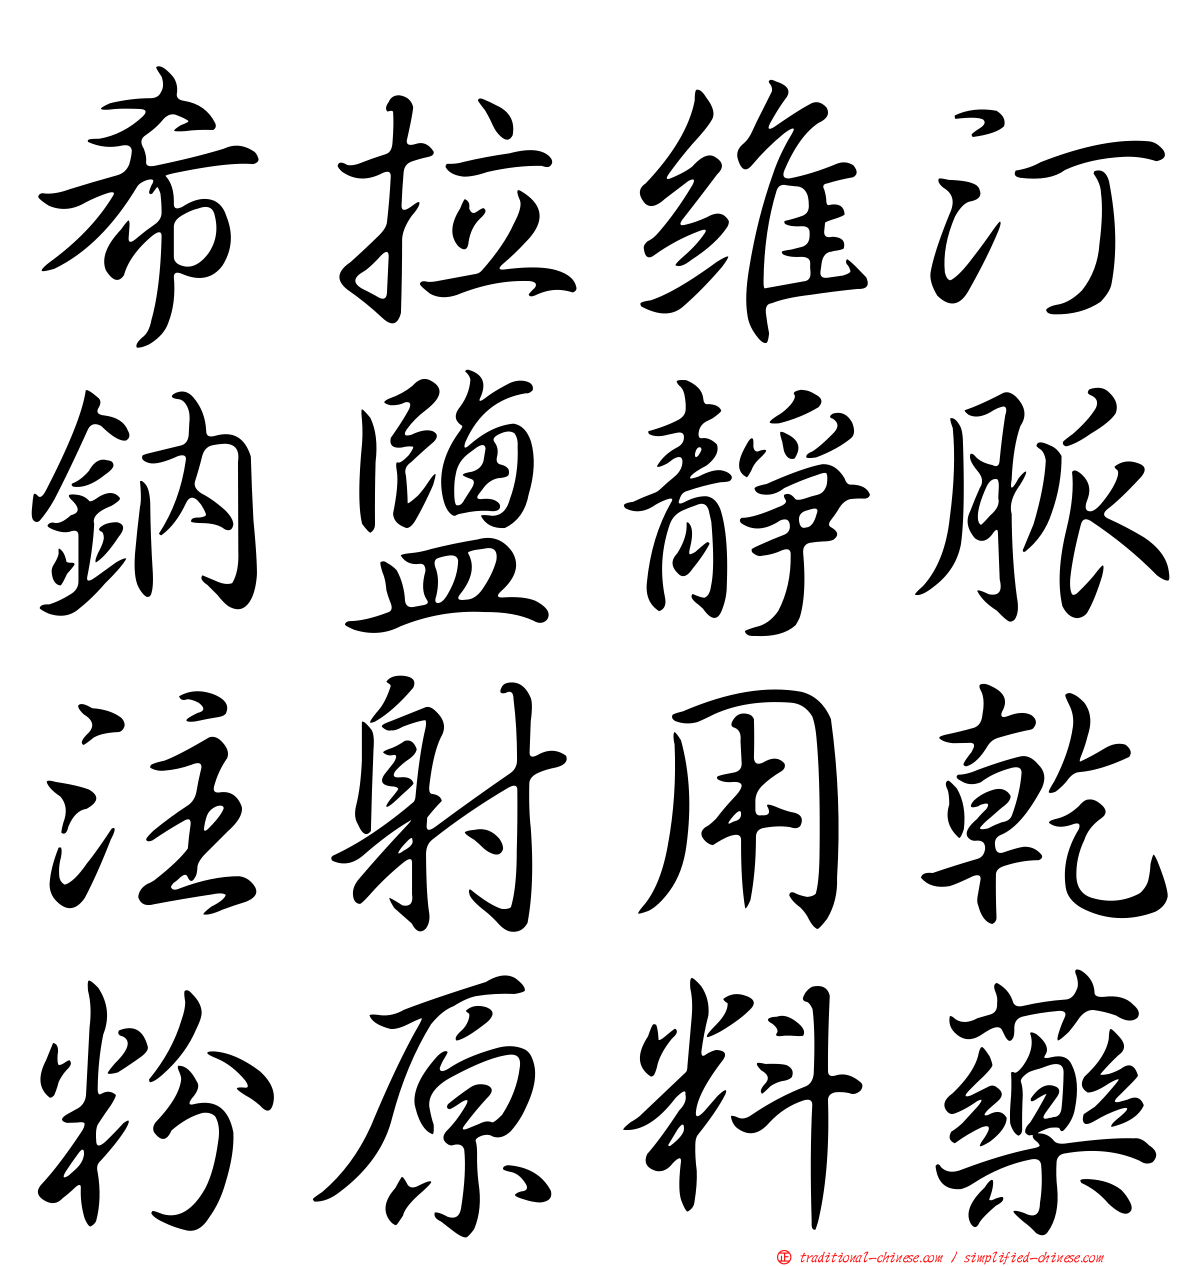 希拉維汀
鈉鹽靜脈
注射用乾
粉原料藥
正 traditional-chinese.com / simplified-chinese.com